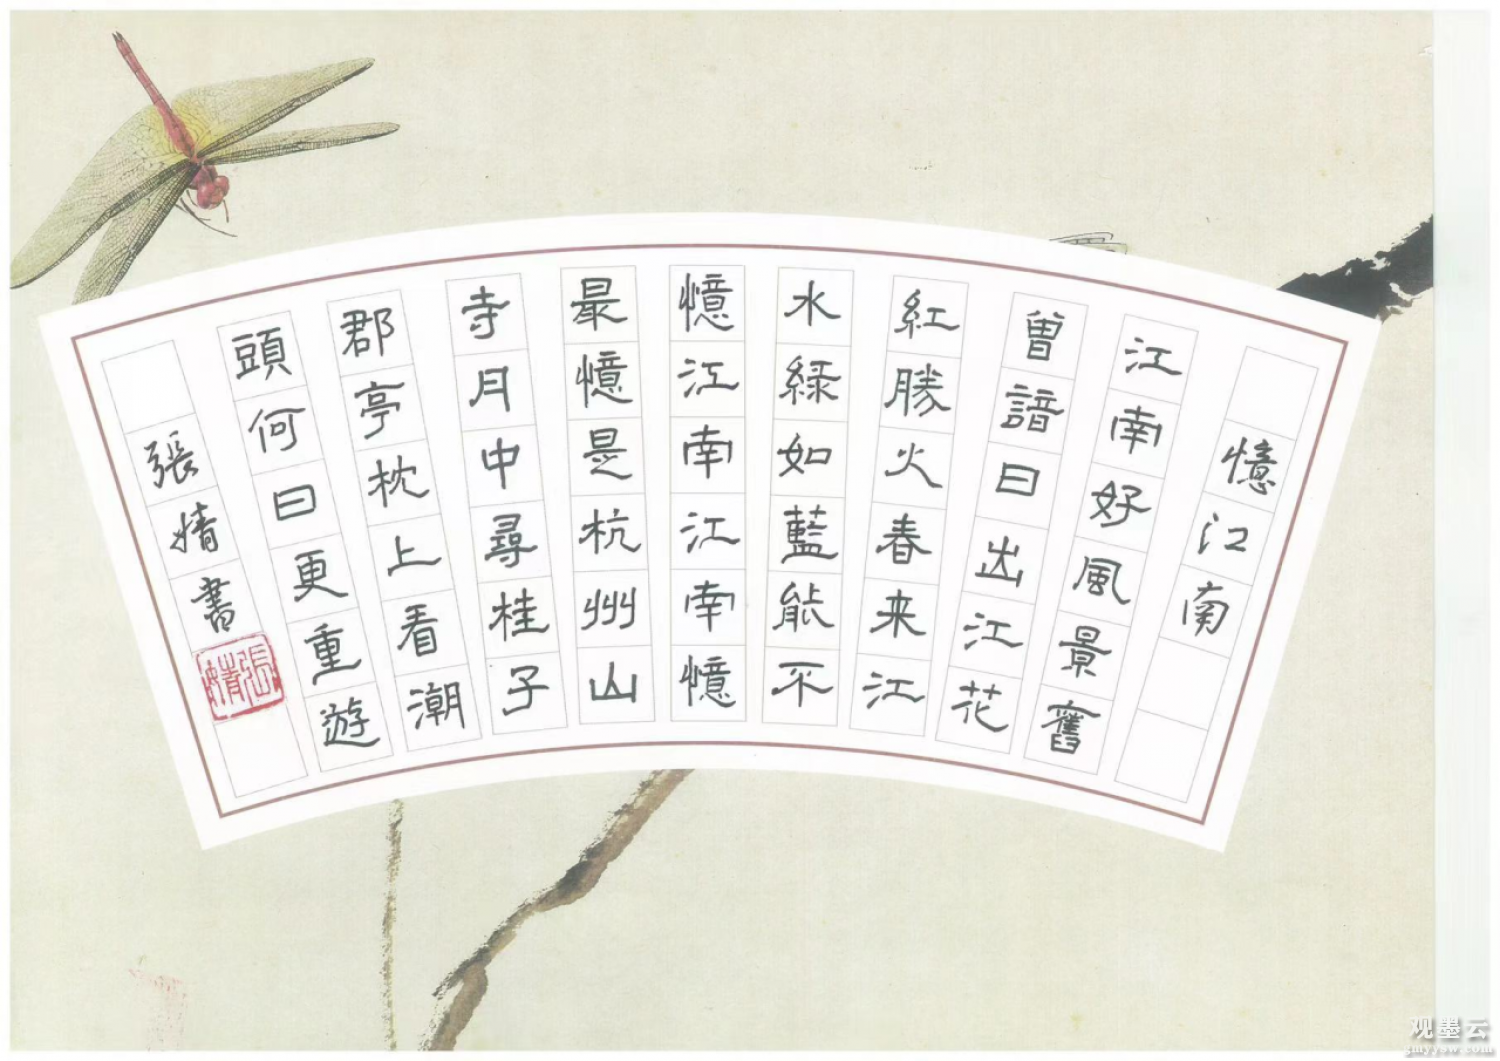 憶江南
江南好風景舊
曾諳曰出江花
紅勝火春来江
水緑如藍能不
憶江南江南憶
最憶是杭州山
寺月中尋桂子
郡亭枕上看潮
頭何曰更重遊
張婧書
張婧
观墨云
gmyysw.com